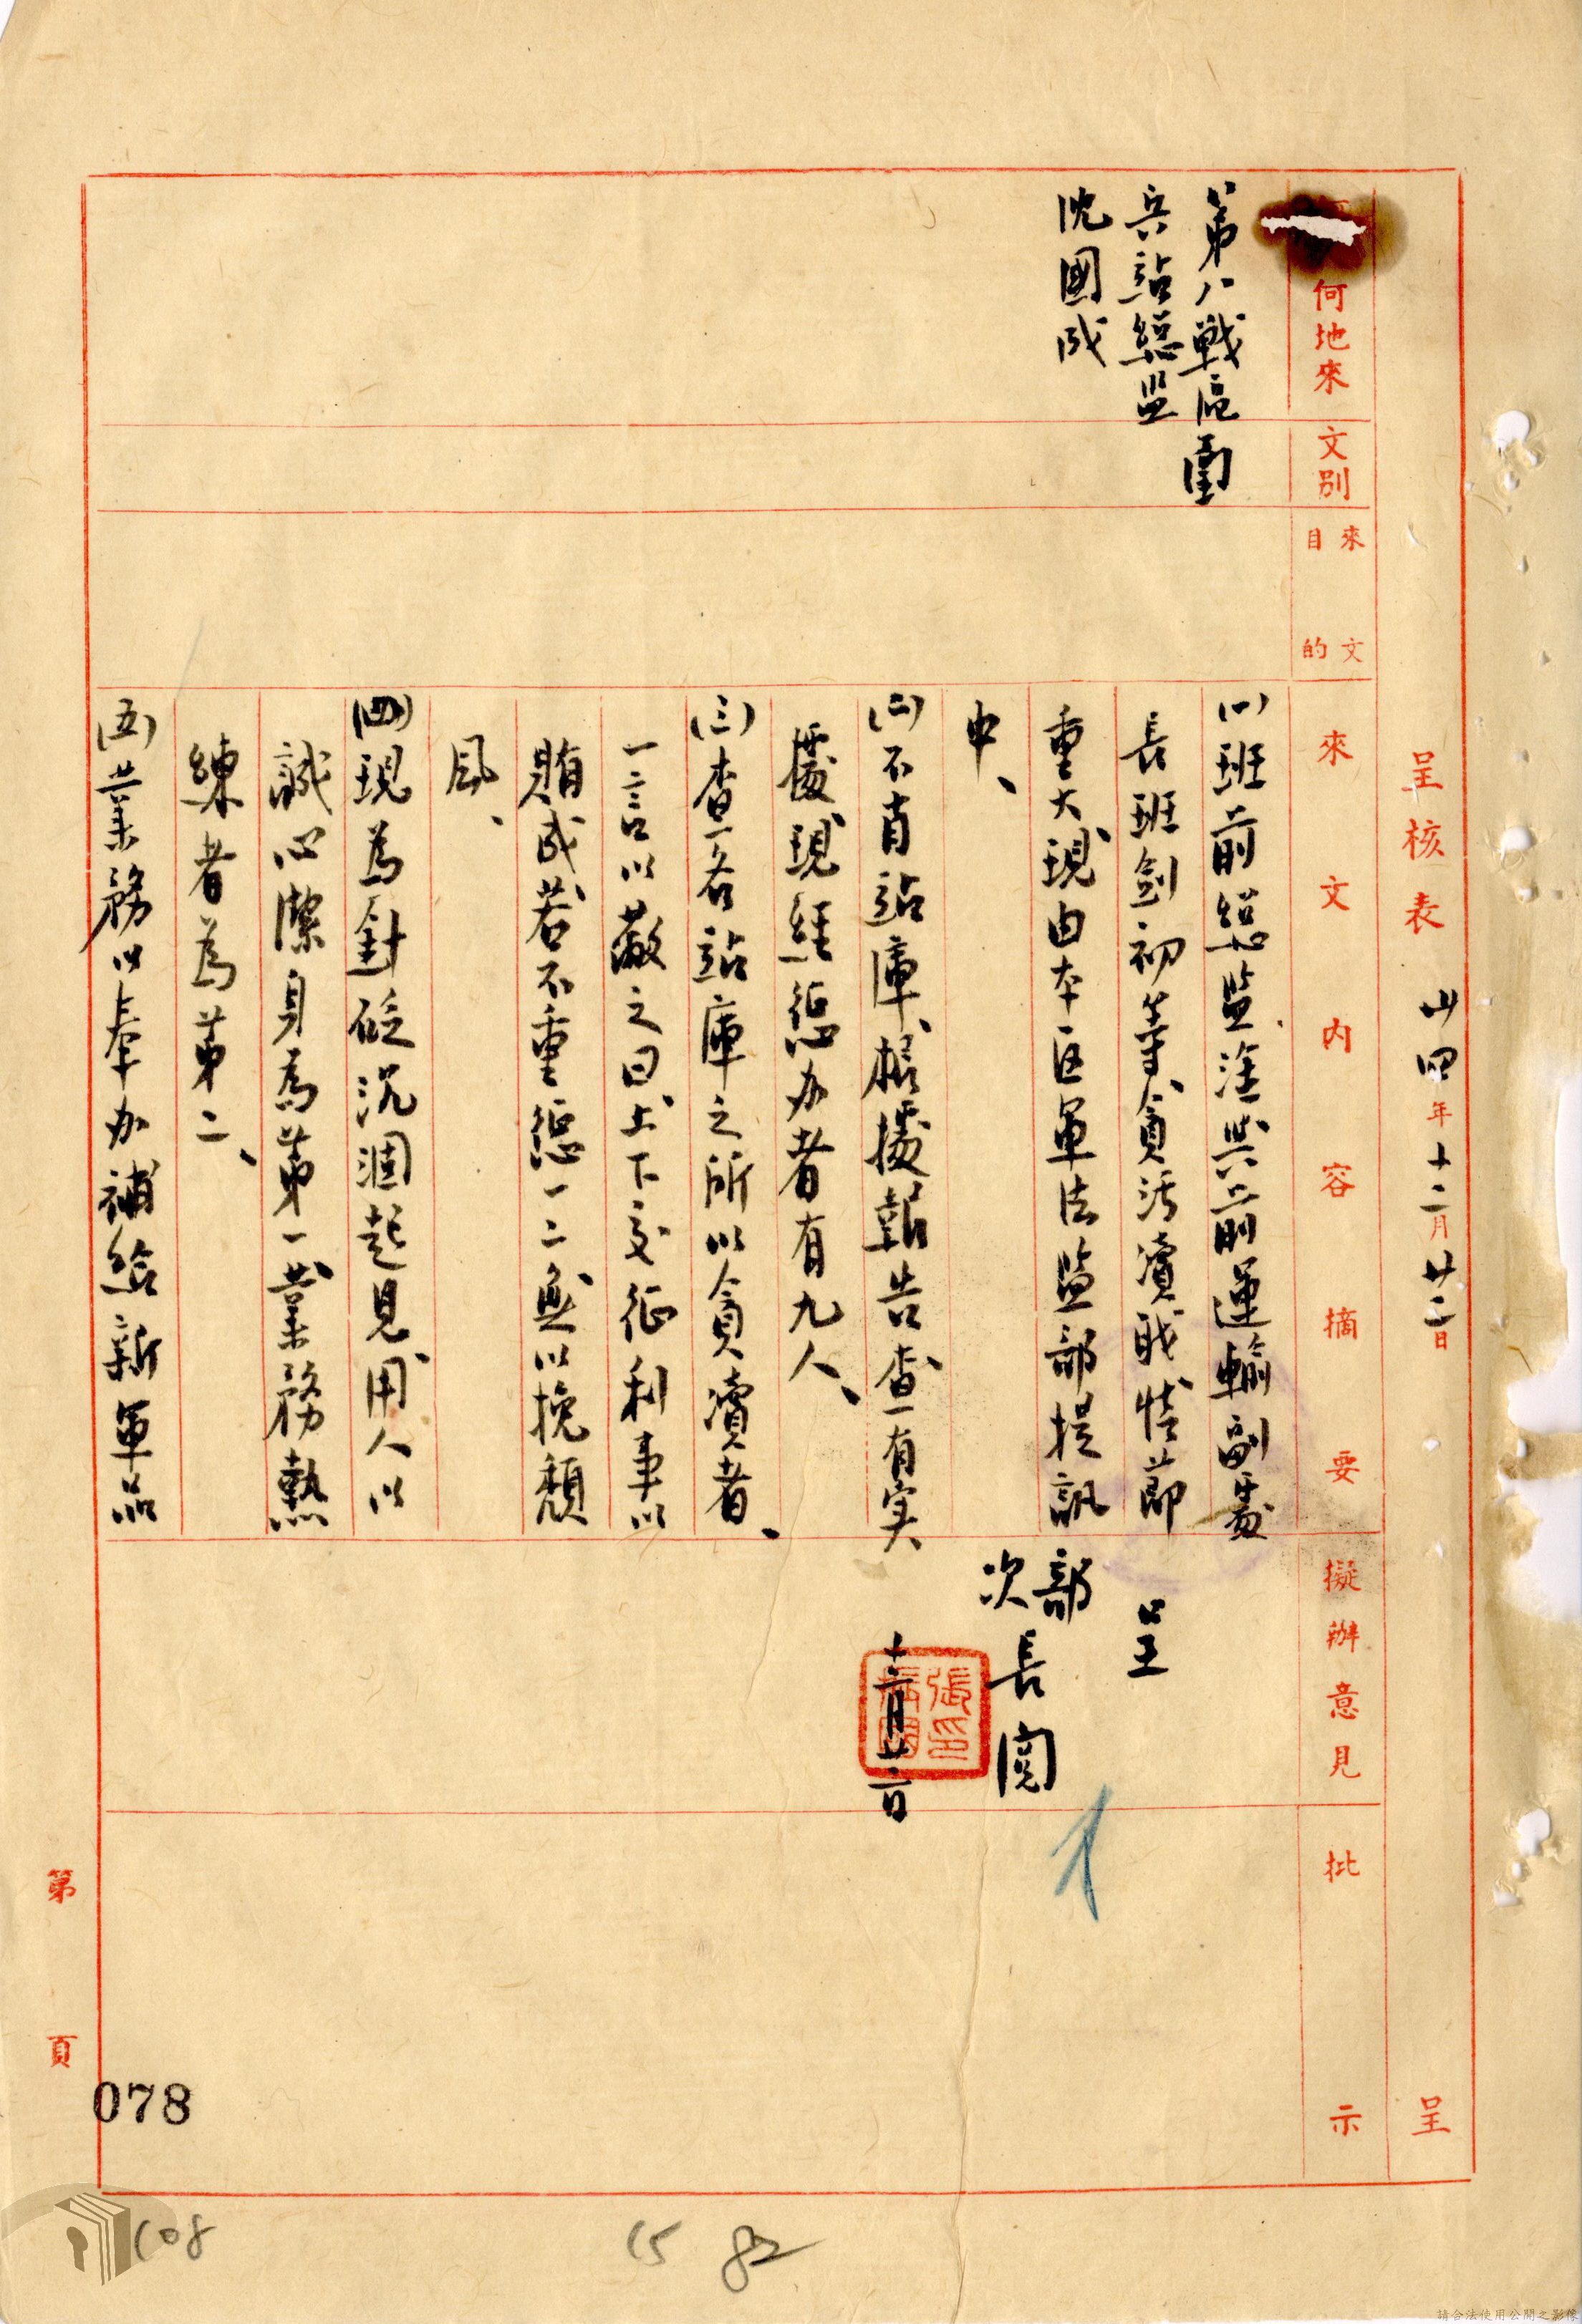 呈核表 卅四年十二月廿二日 呈
何地來
文別
來文目的
來文內容摘要
擬辦意見
批示
第八戰區
兵站總監
沈國成
(一)班前總監淦與前運輸副處
長班劍初等貪污瀆職情節
重大現由本區軍法監部提訊
中、
(二)不肖站庫、根據報告查有实
據現經懲办者有九人、
(三)查各站庫之所以貪瀆者、
一言以蔽之曰、上下交征利事以
賄成若不重懲一二無以挽頹
風、
(四)現為針砭沉涸起見、用人以
誠心潔身為第一、業務熱
練者為第二、
(五)業務以奉办補給新軍品
呈
部
次長閱
十二月廿二日
第 頁
078
108
15 82
請合法使用公開之影像